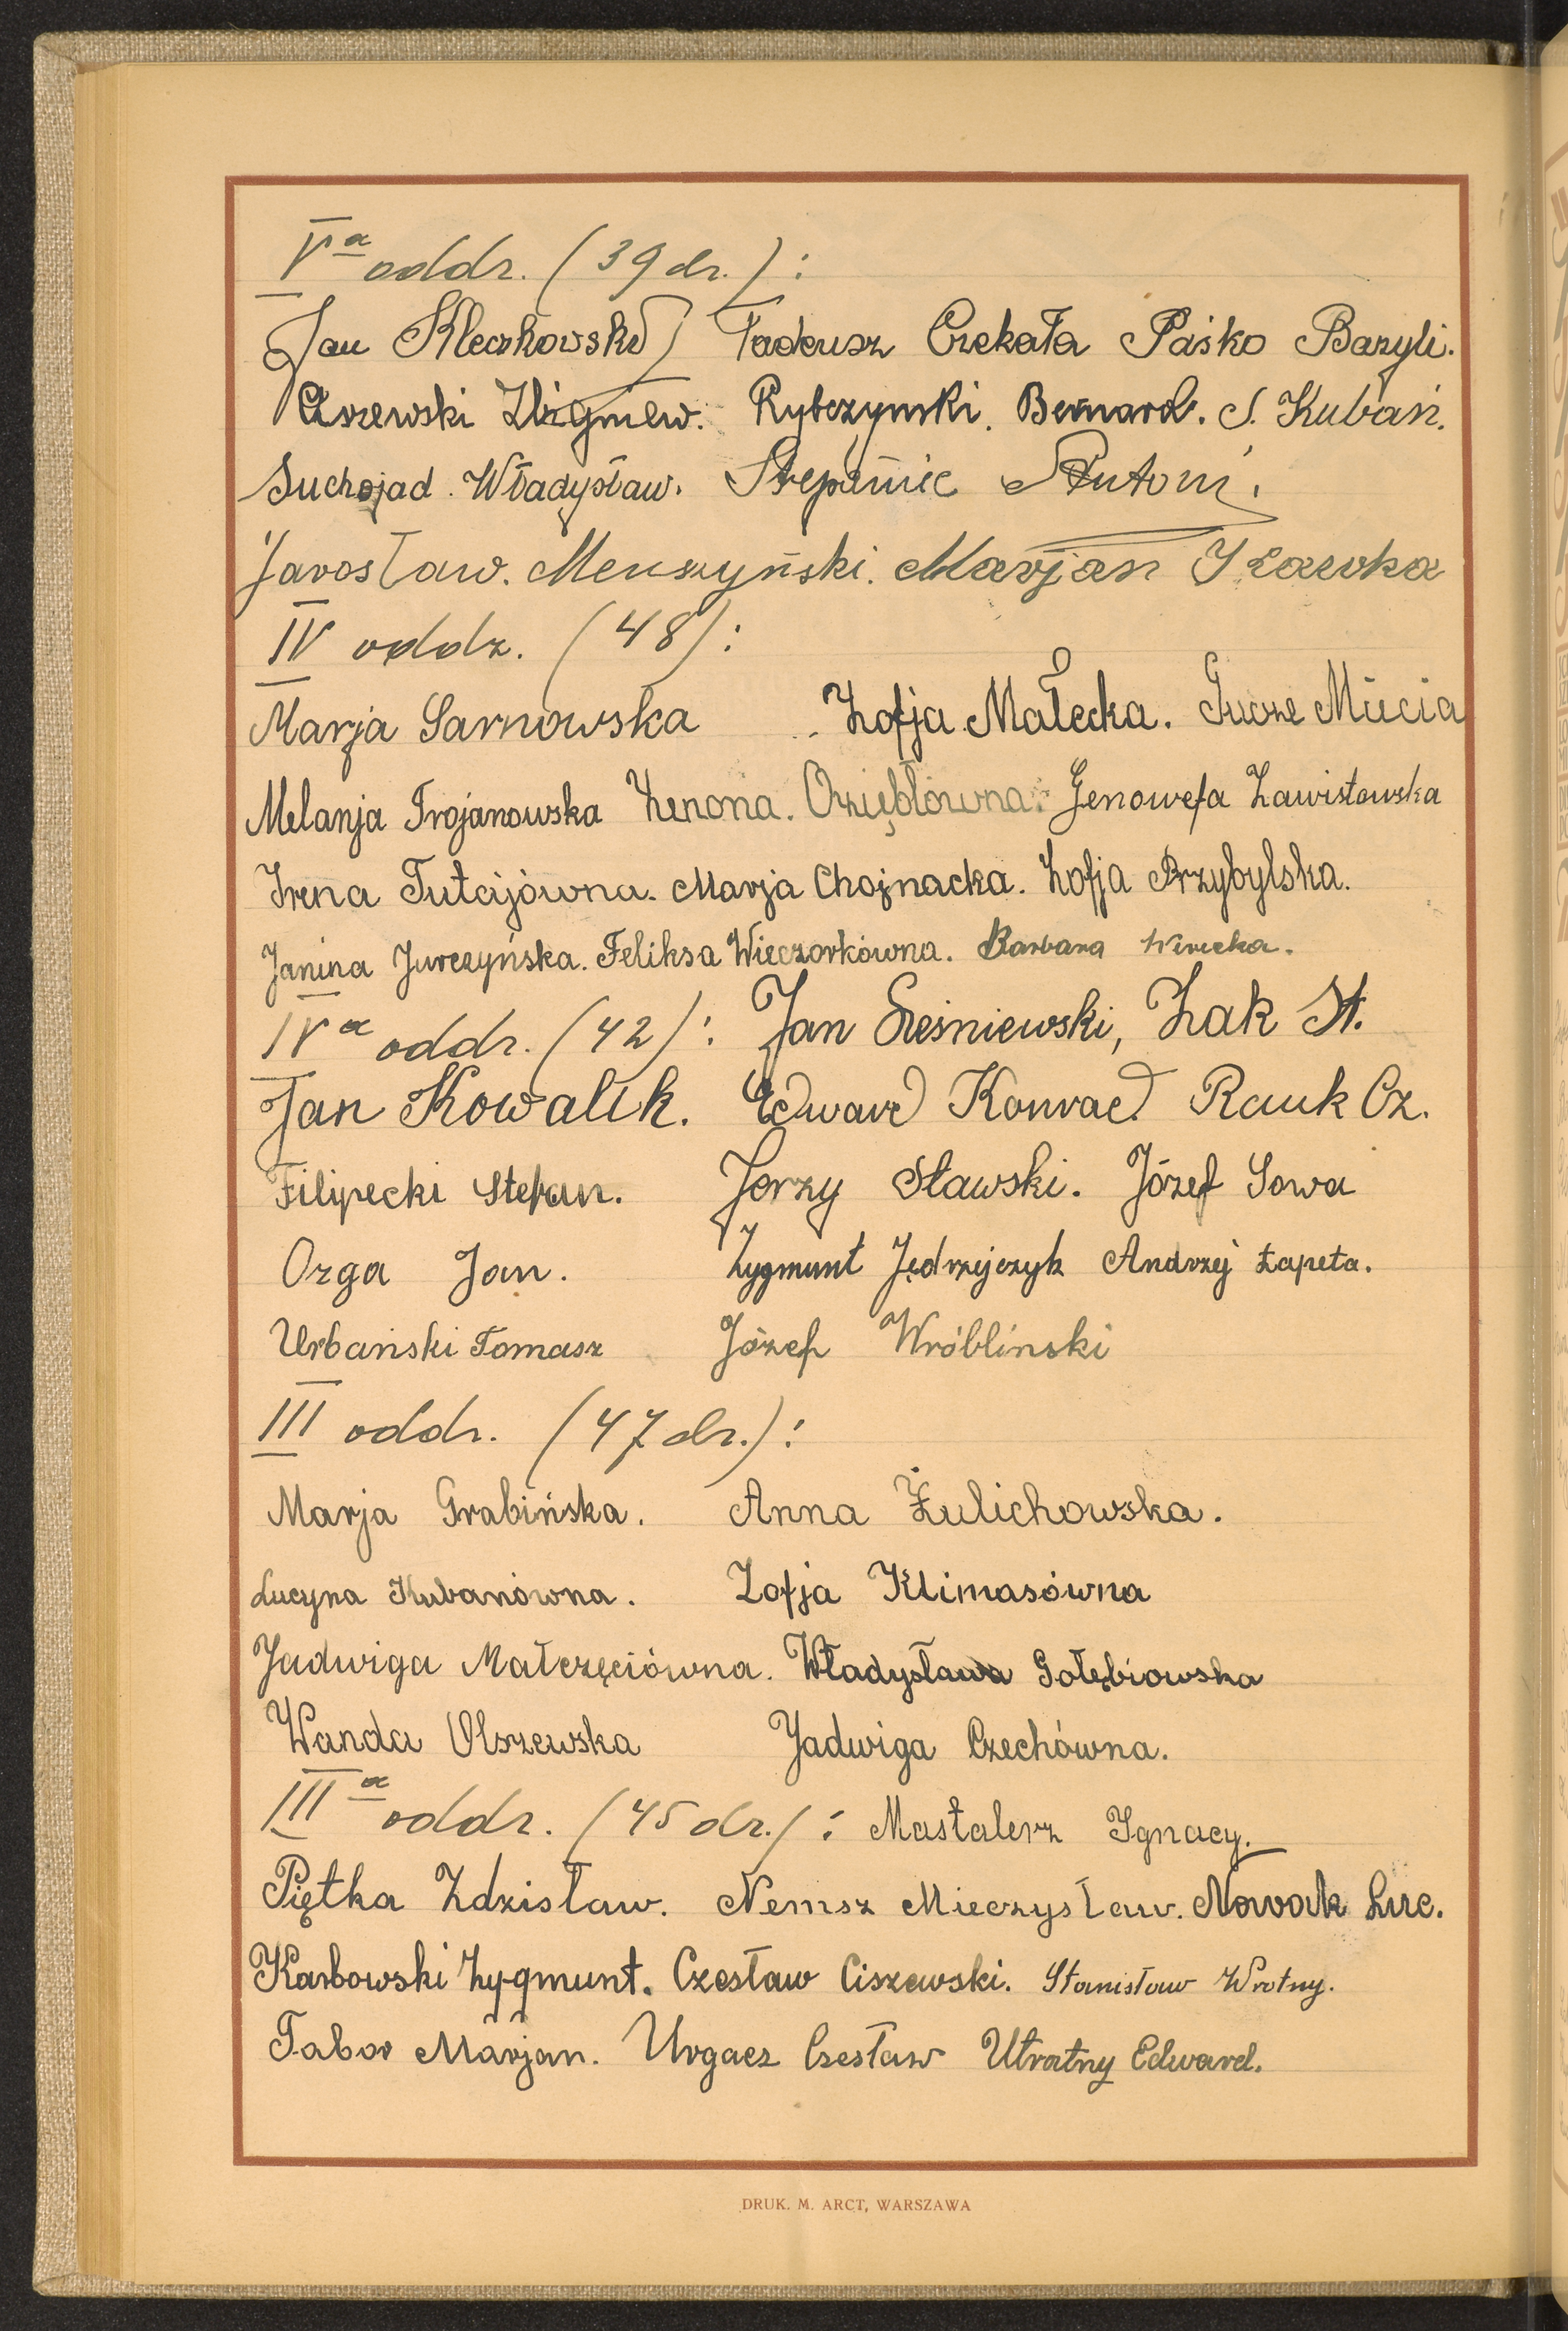 Va oddz. (39 dz.):
Jan Kleczkowski Tadeusz Czekała Paśko Bazyli.
Zbigniew. Rybczyński. Bernard. S. Kubań.
Suchojad. Władysław. Antoni.
Jarosław. Menszyński. Marjan
IV oddz. (48):
Marja Sarnowska Zofja Małecka. Mucia
Melanja Trojanowska Zenona. Oziębłówna. Genowefa Zawistowska
Irena Tutajówna. Marja Chojnacka. Zofja Przybylska.
Janina Jurczyńska. Feliksa Wieczorkówna. Barbara
IVa oddz. (42): Jan Leśniewski, Żak St.
Jan Kowalik. Edward Konrad Rauk Cz.
Filipecki Stefan. Jerzy Sławski. Józef Sowa
Ozga Jan. Zygmunt Jędrzejczyk Andrzej Łapeta.
Urbański Tomasz Józef Wróbliński
III oddz. (47 dz.):
Marja Grabińska. Anna Żulichowska.
Lucyna Kubanówna. Zofja Klimasówna
Jadwiga Małczęciówna. Władysława Gołębiowska
Wanda Olszewska Jadwiga Czechówna.
IIIa oddz. (45 dz.): Mastalerz Ignacy.
Piętka Zdzisław. Nemsz Mieczysław. Nowak Luc.
Karbowski Zygmunt. Czesław Ciszewski. Stanisław Wrotny.
Tabor Marjan. Urgacz Czesław Utratny Edward.
DRUK. M. ARCT, WARSZAWA